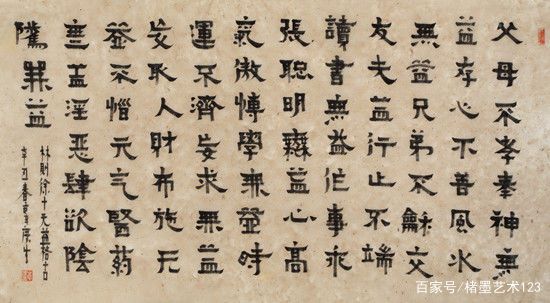 父母不孝奉神無
益存心不善風水
無益兄弟不龢交
友无益行止不端
讀書無益作事乖
張聰明無益心高
氣傲博學無益時
運不濟妄求無益
妄取人財布施无
益不惜元气醫藥
無益淫惡肆欲陰
騭無益
林則徐十无益格言
辛丑春
百家号/楮墨艺术123